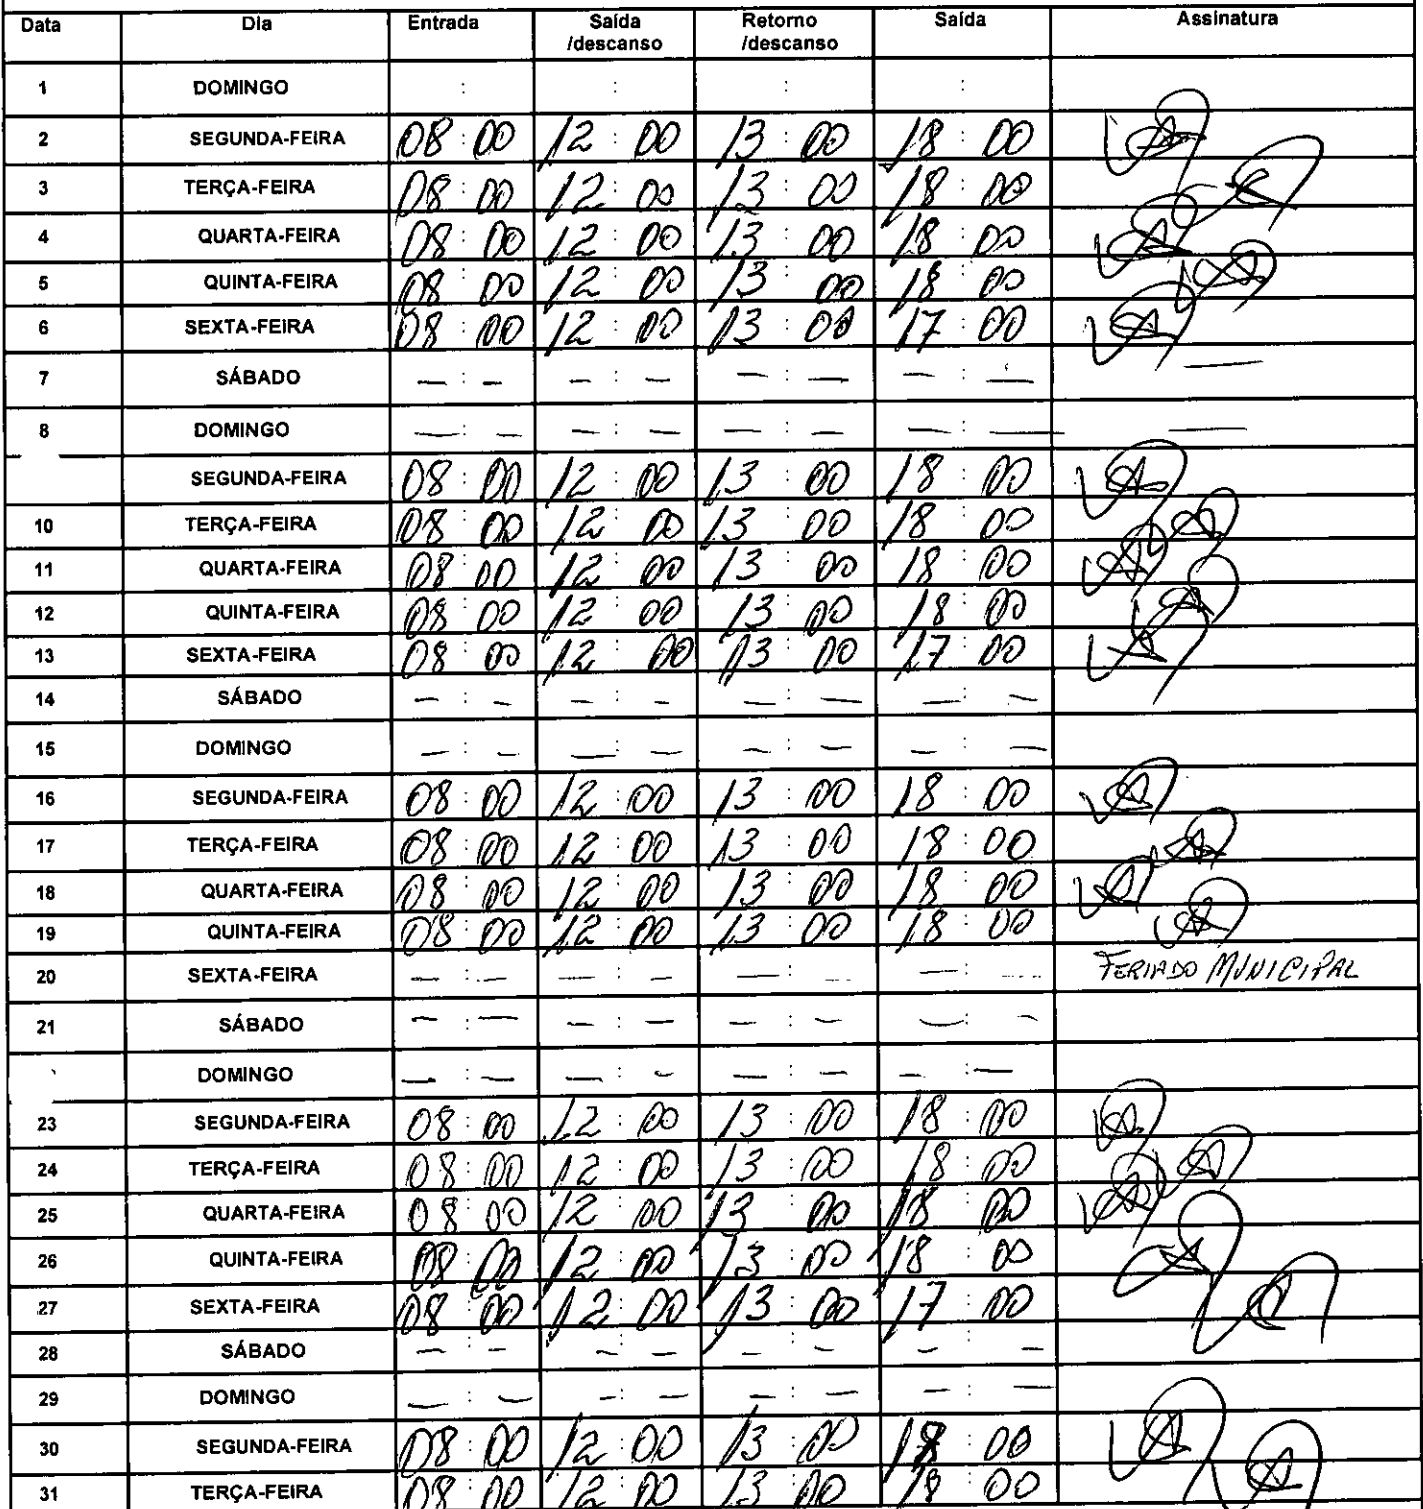 Data Dia Entrada Saída /descanso Retorno /descanso Saída Assinatura
1 DOMINGO : : : :
2 SEGUNDA-FEIRA 08:00 12:00 13:00 18:00
3 TERÇA-FEIRA 08:00 12:00 13:00 18:00
4 QUARTA-FEIRA 08:00 12:00 13:00 18:00
5 QUINTA-FEIRA 08:00 12:00 13:00 18:00
6 SEXTA-FEIRA 08:00 12:00 13:00 17:00
7 SÁBADO —:— —:— —:— —:— —
8 DOMINGO —:— —:— —:— —:— —
SEGUNDA-FEIRA 08:00 12:00 13:00 18:00
10 TERÇA-FEIRA 08:00 12:00 13:00 18:00
11 QUARTA-FEIRA 08:00 12:00 13:00 18:00
12 QUINTA-FEIRA 08:00 12:00 13:00 18:00
13 SEXTA-FEIRA 08:00 12:00 13:00 17:00
14 SÁBADO —:— —:— —:— —:—
15 DOMINGO —:— —:— —:— —:—
16 SEGUNDA-FEIRA 08:00 12:00 13:00 18:00
17 TERÇA-FEIRA 08:00 12:00 13:00 18:00
18 QUARTA-FEIRA 08:00 12:00 13:00 18:00
19 QUINTA-FEIRA 08:00 12:00 13:00 18:00
20 SEXTA-FEIRA —:— —:— —:— —:— FERIADO MUNICIPAL
21 SÁBADO —:— —:— —:— —:—
DOMINGO —:— —:— —:— —:—
23 SEGUNDA-FEIRA 08:00 12:00 13:00 18:00
24 TERÇA-FEIRA 08:00 12:00 13:00 18:00
25 QUARTA-FEIRA 08:00 12:00 13:00 18:00
26 QUINTA-FEIRA 08:00 12:00 13:00 18:00
27 SEXTA-FEIRA 08:00 12:00 13:00 17:00
28 SÁBADO —:— —:— —:— —:—
29 DOMINGO —:— —:— —:— —:—
30 SEGUNDA-FEIRA 08:00 12:00 13:00 18:00
31 TERÇA-FEIRA 08:00 12:00 13:00 18:00